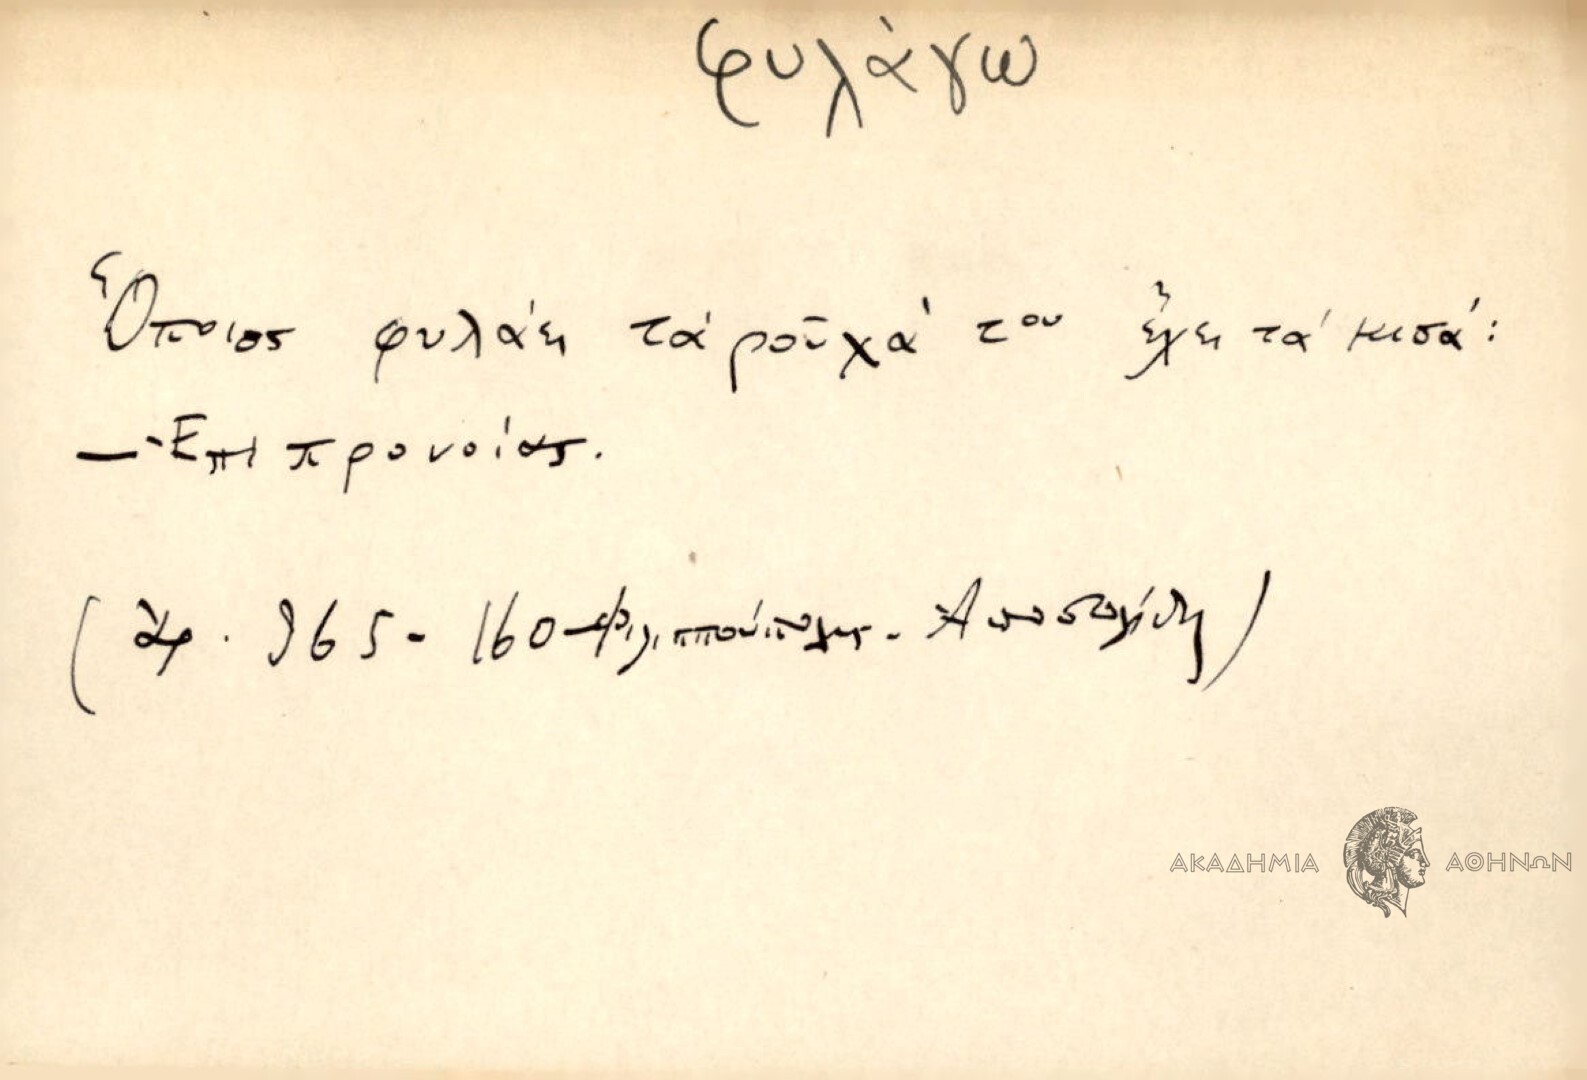 φυλάγω
Ὅποιος φυλάει τά ροῦχά του ἔχει τά μισά:
— Ἐπί προνοίας.
(ἀρ. 965 - 160 - Φιλιππούπολις - Ἀποστολίδη)
ΑΚΑΔΗΜΙΑ ΑΘΗΝΩΝ